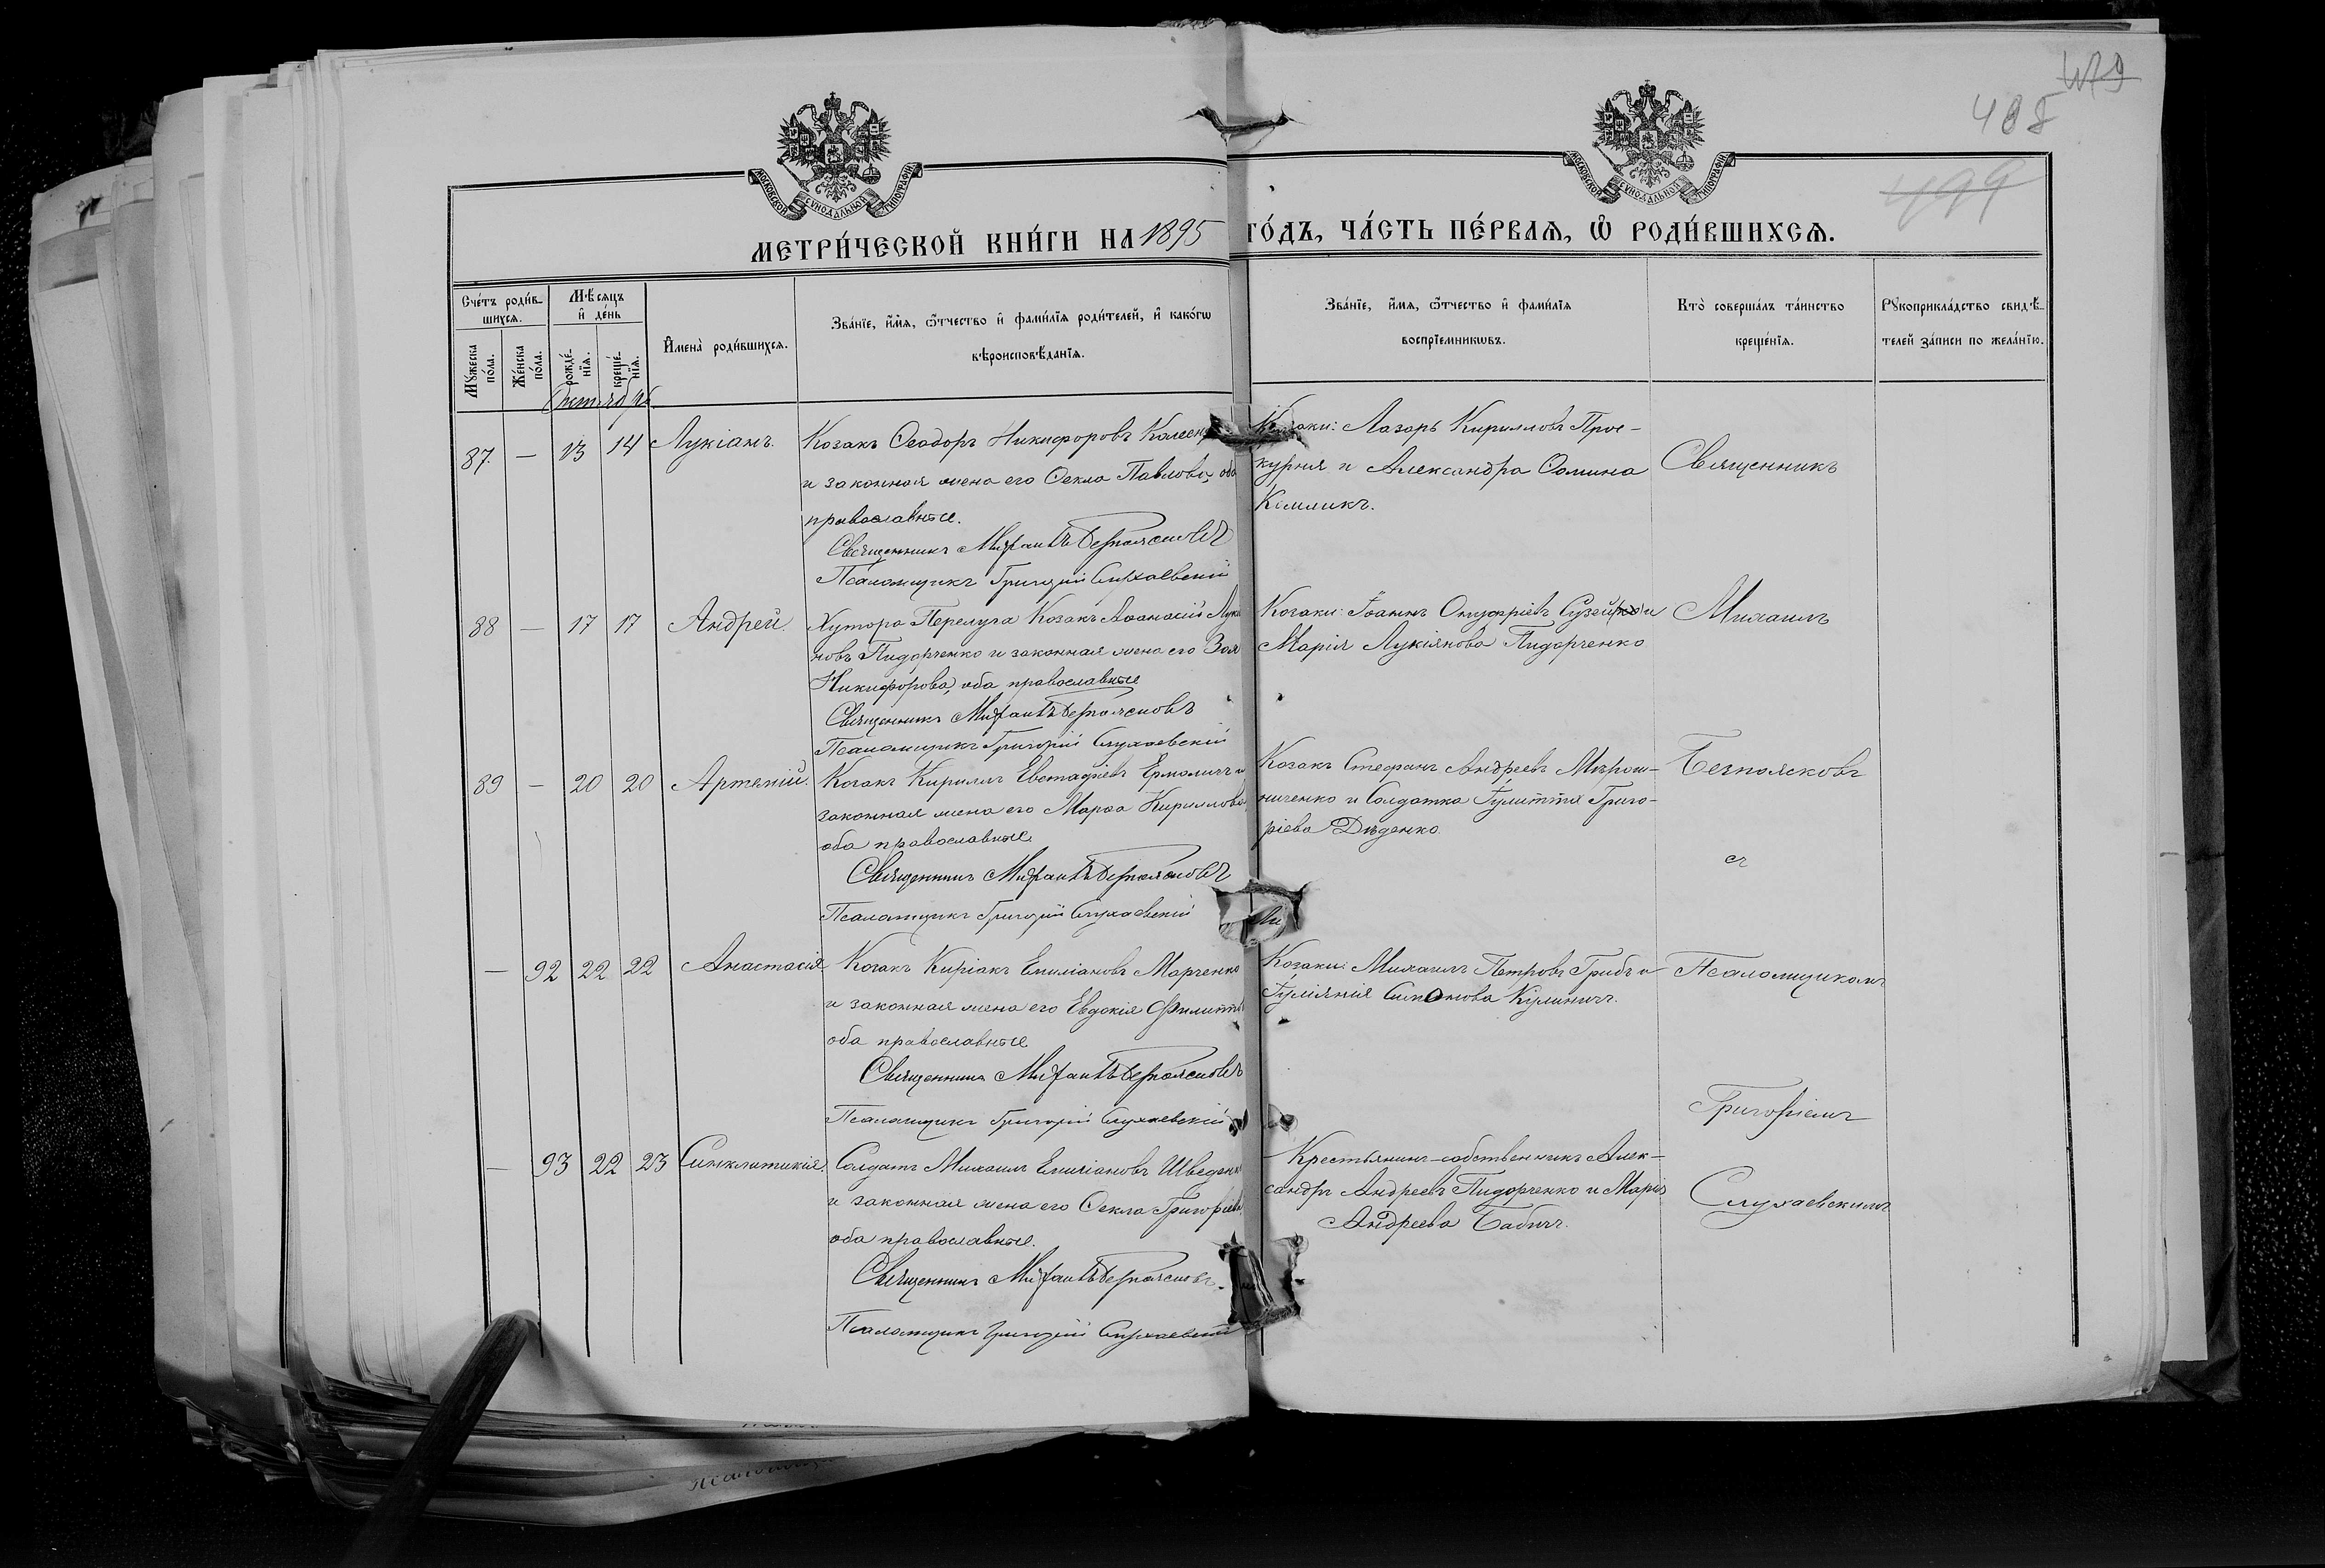 479
408
499
МОСКОВСКОЙ СѴНОДАЛЬНОЙ ТИПОГРАФІИ
МОСКОВСКОЙ СѴНОДАЛЬНОЙ ТИПОГРАФІИ
МЕТРИ́ЧЕСКОЙ КНИ́ГИ НА 1895 ГО́ДЪ, ЧА́СТЬ ПЕ́РВАѦ, Ѡ҆ РОДИ́ВШИХСѦ.
Сче́тъ роди́вшихсѧ.
Мꙋ́жеска по́ла.
Же́нска по́ла.
Мѣ́сѧцъ и҆ де́нь
рожде́нїѧ.
креще́нїѧ.
И҆мена̀ роди́вшихсѧ.
Зва́нїе, и҆́мѧ, ѻ҆́тчество и҆ фами́лїѧ роди́телей, и҆ како́гѡ вѣроисповѣ́данїѧ.
Зва́нїе, и҆́мѧ, ѻ҆́тчество и҆ фами́лїѧ воспрїе́мникѡвъ.
Кто̀ соверша́лъ та́инство креще́нїѧ.
Рꙋкоприкла́дство свидѣ́телей за́писи по жела́нїю.
Октябрь
87. — 13 14 Лукіанъ.
Козакъ Ѳеодоръ Никифоровъ
и законная жена его Ѳекла Павлова, оба
православные.
Священникъ Михаилъ Безпоясковъ
Псаломщикъ Григорій Слухаевскій
Козаки: Лазарь Кирилловъ Прос-
курня и Александра Ѳомина
88 — 17 17 Андрей.
Хутора Перелуга Козакъ Аѳанасій Луки
новъ Пидорченко и законная жена его Зоя
Никифорова, оба православные
Священникъ Михаилъ Безпоясковъ
Псаломщикъ Григорій Слухаевскій
Козаки: Іоаннъ Онуфріевъ и
Марія Лукіянова Пидорченко
89 — 20 20 Артемій.
Козакъ Кириллъ Евстафіевъ Ермоличъ и
законная жена его Марѳа Кириллова,
оба православные.
Священникъ Михаилъ Безпоясковъ
Псаломщикъ Григорій Слухаевскій
Козакъ Стефанъ Андреевъ Мирош-
ниченко и Солдатка Іулиттія Григо-
ріева Дяденко.
— 92 22 22 Анастасія
Козакъ Киріакъ Емиліановъ Марченко
и законная жена его Евдокія Филипп
оба православные
Священникъ Михаилъ Безпоясковъ
Псаломщикъ Григорій Слухаевскій
Козаки: Михаилъ Петровъ Грибъ и
Іуліянія Симонова Кулиничъ.
— 93 22 23 Синклитикія
Солдатъ Михаилъ Емиліановъ Шведенко
и законная жена его Ѳекла Григоріева
оба православные.
Священникъ Михаилъ Безпоясковъ
Псаломщикъ Григорій Слухаевскій
Крестьянинъ-собственникъ Алек-
сандръ Андреевъ Пидорченко и Марія
Андреева Бабичъ.
Священникъ
Михаилъ
Безпоясковъ
съ
Псаломщикомъ
Григоріемъ
Слухаевскимъ